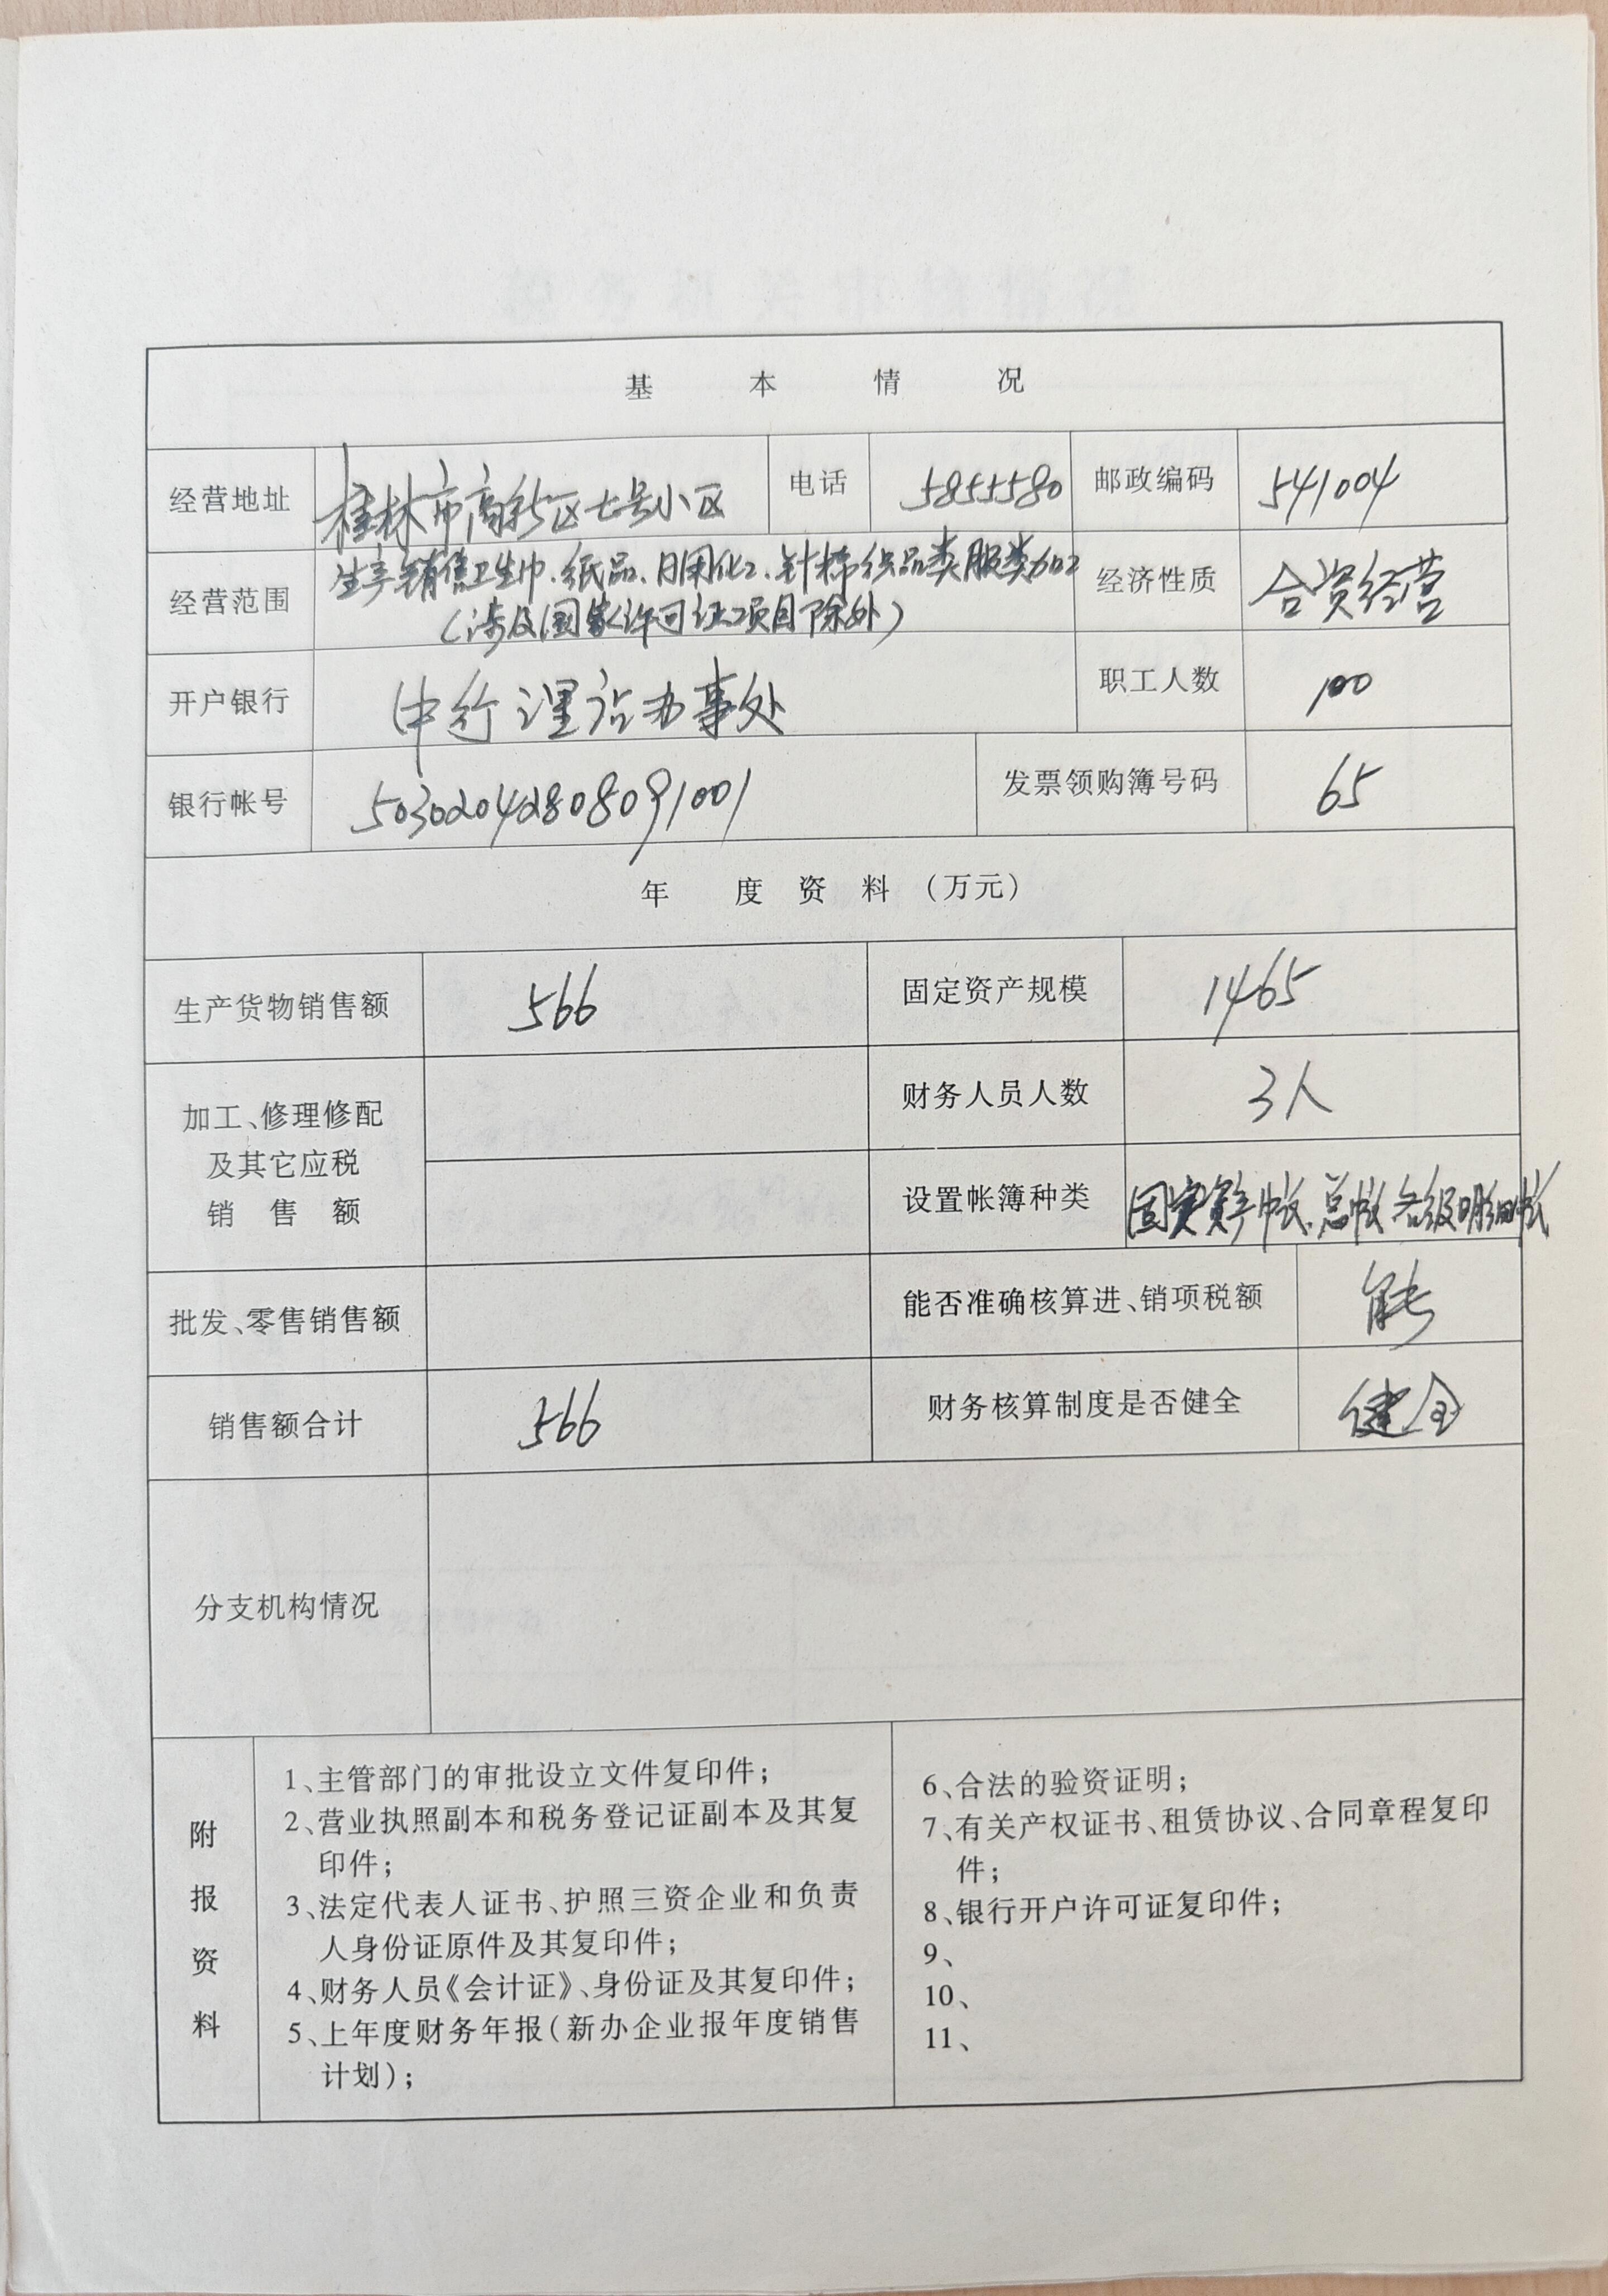 基 本 情 况
经营地址 桂林市高新区七号小区 电话 5855580 邮政编码 541004
经营范围 生产销售卫生巾、纸品、日用化工、针棉织品类服类加工 经济性质 合资经营
(涉及国家许可证项目除外)
开户银行 中行漓江办事处 职工人数 100
银行帐号 50302042808091001 发票领购簿号码 65
年 度 资 料 (万元)
生产货物销售额 566 固定资产规模 1465
加工、修理修配
及其它应税
销 售 额
财务人员人数 3人
设置帐簿种类 固定资产帐、总帐各级明细帐
批发、零售销售额 能否准确核算进、销项税额 能
销售额合计 566 财务核算制度是否健全 健全
分支机构情况
附报资料
1、主管部门的审批设立文件复印件;
2、营业执照副本和税务登记证副本及其复
印件;
3、法定代表人证书、护照三资企业和负责
人身份证原件及其复印件;
4、财务人员《会计证》、身份证及其复印件;
5、上年度财务年报(新办企业报年度销售
计划);
6、合法的验资证明;
7、有关产权证书、租赁协议、合同章程复印
件;
8、银行开户许可证复印件;
9、
10、
11、